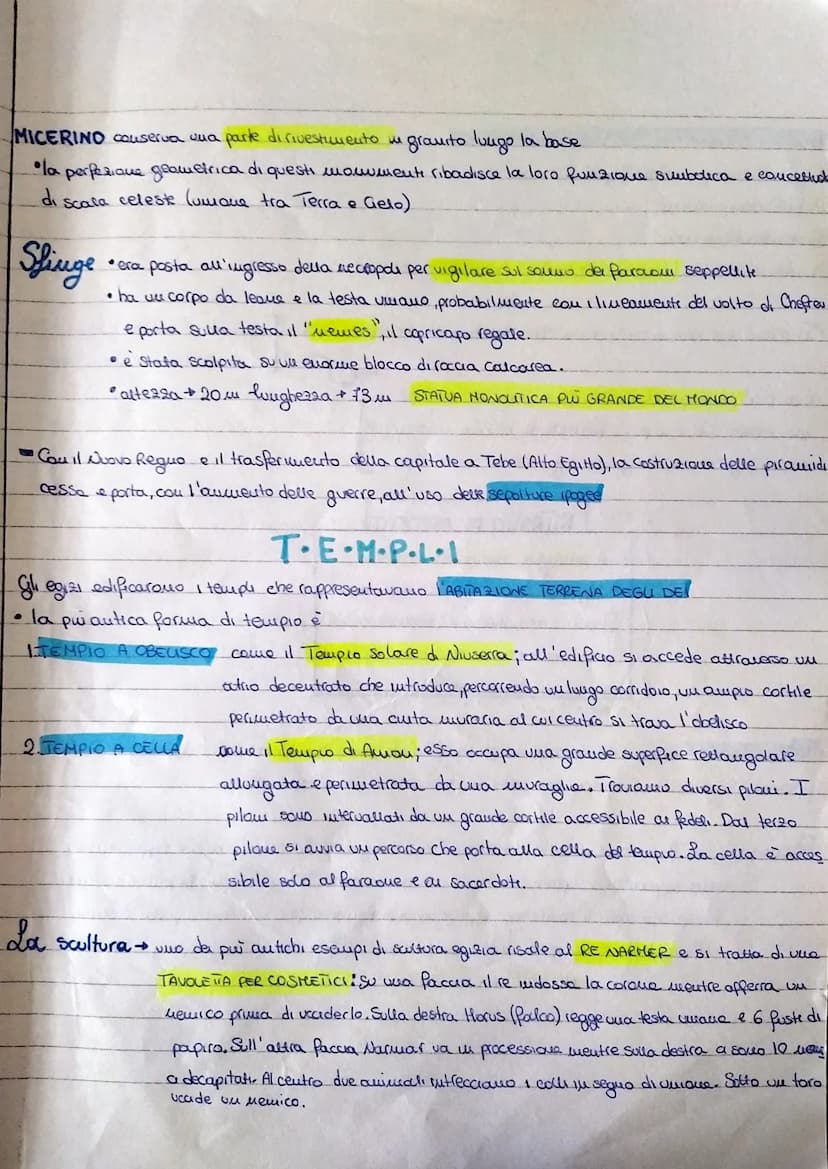 MICERINO conserva una parte di rivestimento in granito lungo la base
•la perfezione geometrica di questi monumenti ribadisce la loro funzione simbolica e concettual
di scala celeste (unione tra Terra e Cielo)
Sfinge •era posta all'ingresso della necropoli per vigilare sul sonno dei faraoni seppelliti
•ha un corpo da leone e la testa umano, probabilmente con i lineamenti del volto di Chefren
e porta sulla testa il "nemes", il copricapo regale.
•è stata scolpita su un enorme blocco di roccia calcarea.
•altezza→20m lunghezza→73m STATUA MONOLITICA PIÙ GRANDE DEL MONDO
-Con il Nuovo Regno e il trasferimento della capitale a Tebe (Alto Egitto), la costruzione delle piramidi
cessa e porta, con l'aumento delle guerre, all'uso delle sepolture ipogee
T•E•M•P•L•I
Gli egizi edificarono i templi che rappresentavano l'ABITAZIONE TERRENA DEGLI DEI
•la più antica forma di tempio è
1.TEMPIO A OBELISCO come il Tempio solare di Niuserra; all'edificio si accede attraverso un
atrio decentrato che introduce, percorrendo un lungo corridoio, un ampio cortile
perimetrato da una cinta muraria al cui centro si trova l'obelisco
2.TEMPIO A CELLA come il Tempio di Amon; esso occupa una grande superfice rettangolare
allungata e perimetrata da una muraglia. Troviamo diversi piloni. I
piloni sono intervallati da un grande cortile accessibile ai fedeli. Dal terzo
pilone si avvia un percorso che porta alla cella del tempio. La cella è acces
sibile solo al faraone e ai sacerdoti.
La scultura→uno dei più antichi esempi di scultura egizia risale al RE NARMER e si tratta di una
TAVOLETTA PER COSMETICI: Su una faccia il re indossa la corona mentre afferra un
nemico prima di ucciderlo. Sulla destra Horus (falco) regge una testa umana e 6 fusti di
papiro. Sull'altra faccia Narmar va in processione mentre sulla destra a sono 10 nemi
ci decapitati. Al centro due animali intrecciano i colli in segno di unione. Sotto un toro
uccide un nemico.